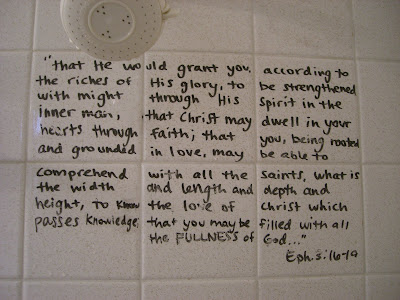 "that He would grant you, according to
the riches of His glory, to be strengthened
with might through His Spirit in the
inner man, that Christ may dwell in your
hearts through faith; that you, being rooted
and grounded in love, may be able to
comprehend with all the saints, what is
the width and length and depth and
height, to know the love of Christ which
passes knowledge, that you may be filled with all
the FULLNESS of God..."
Eph. 3:16-19